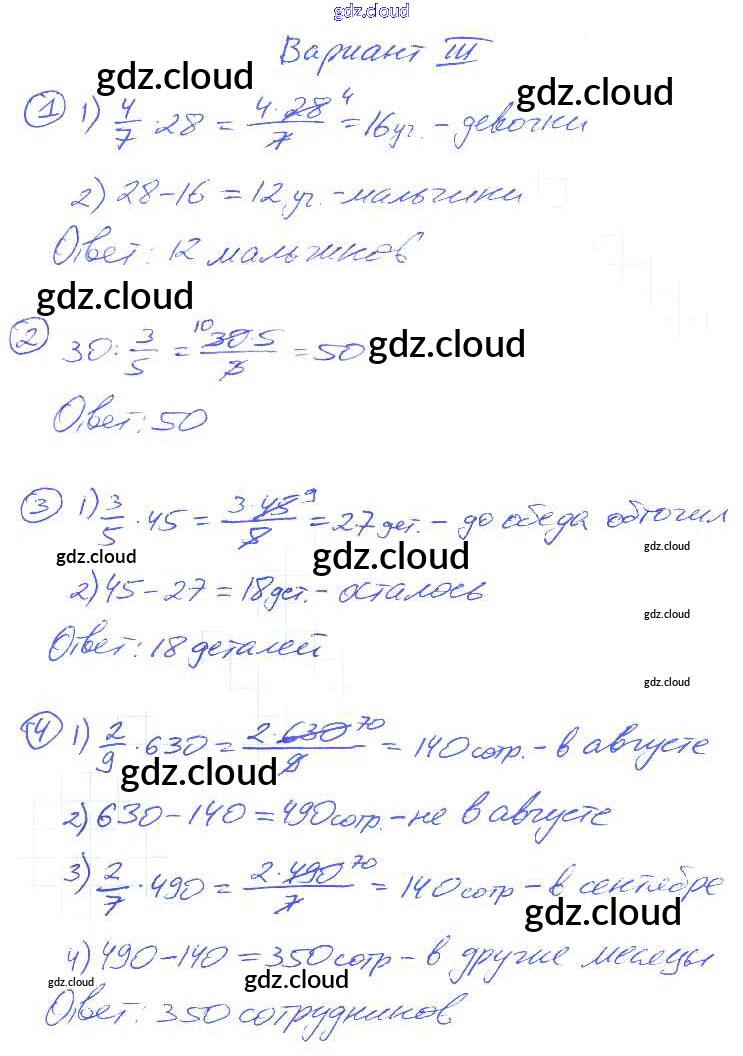 gdz.cloud
Вариант III
gdz.cloud
gdz.cloud
① 1) 4/7 · 28 = 4·28/7 4 = 16 уч. - девочки
2) 28 - 16 = 12 уч. - мальчики
Ответ: 12 мальчиков
gdz.cloud
② 30 : 3/5 = 10 30·5/3 = 50
gdz.cloud
Ответ: 50
③ 1) 3/5 · 45 = 3·45/5 9 = 27 дет. - до обеда обточил
gdz.cloud
gdz.cloud
gdz.cloud
2) 45 - 27 = 18 дет. - осталось
gdz.cloud
Ответ: 18 деталей
gdz.cloud
④ 1) 2/9 · 630 = 2·630/9 70 = 140 сотр. - в августе
gdz.cloud
2) 630 - 140 = 490 сотр. - не в августе
3) 2/7 · 490 = 2·490/7 70 = 140 сотр - в сентябре
gdz.cloud
4) 490 - 140 = 350 сотр - в другие месяцы
gdz.cloud
gdz.cloud
Ответ: 350 сотрудников